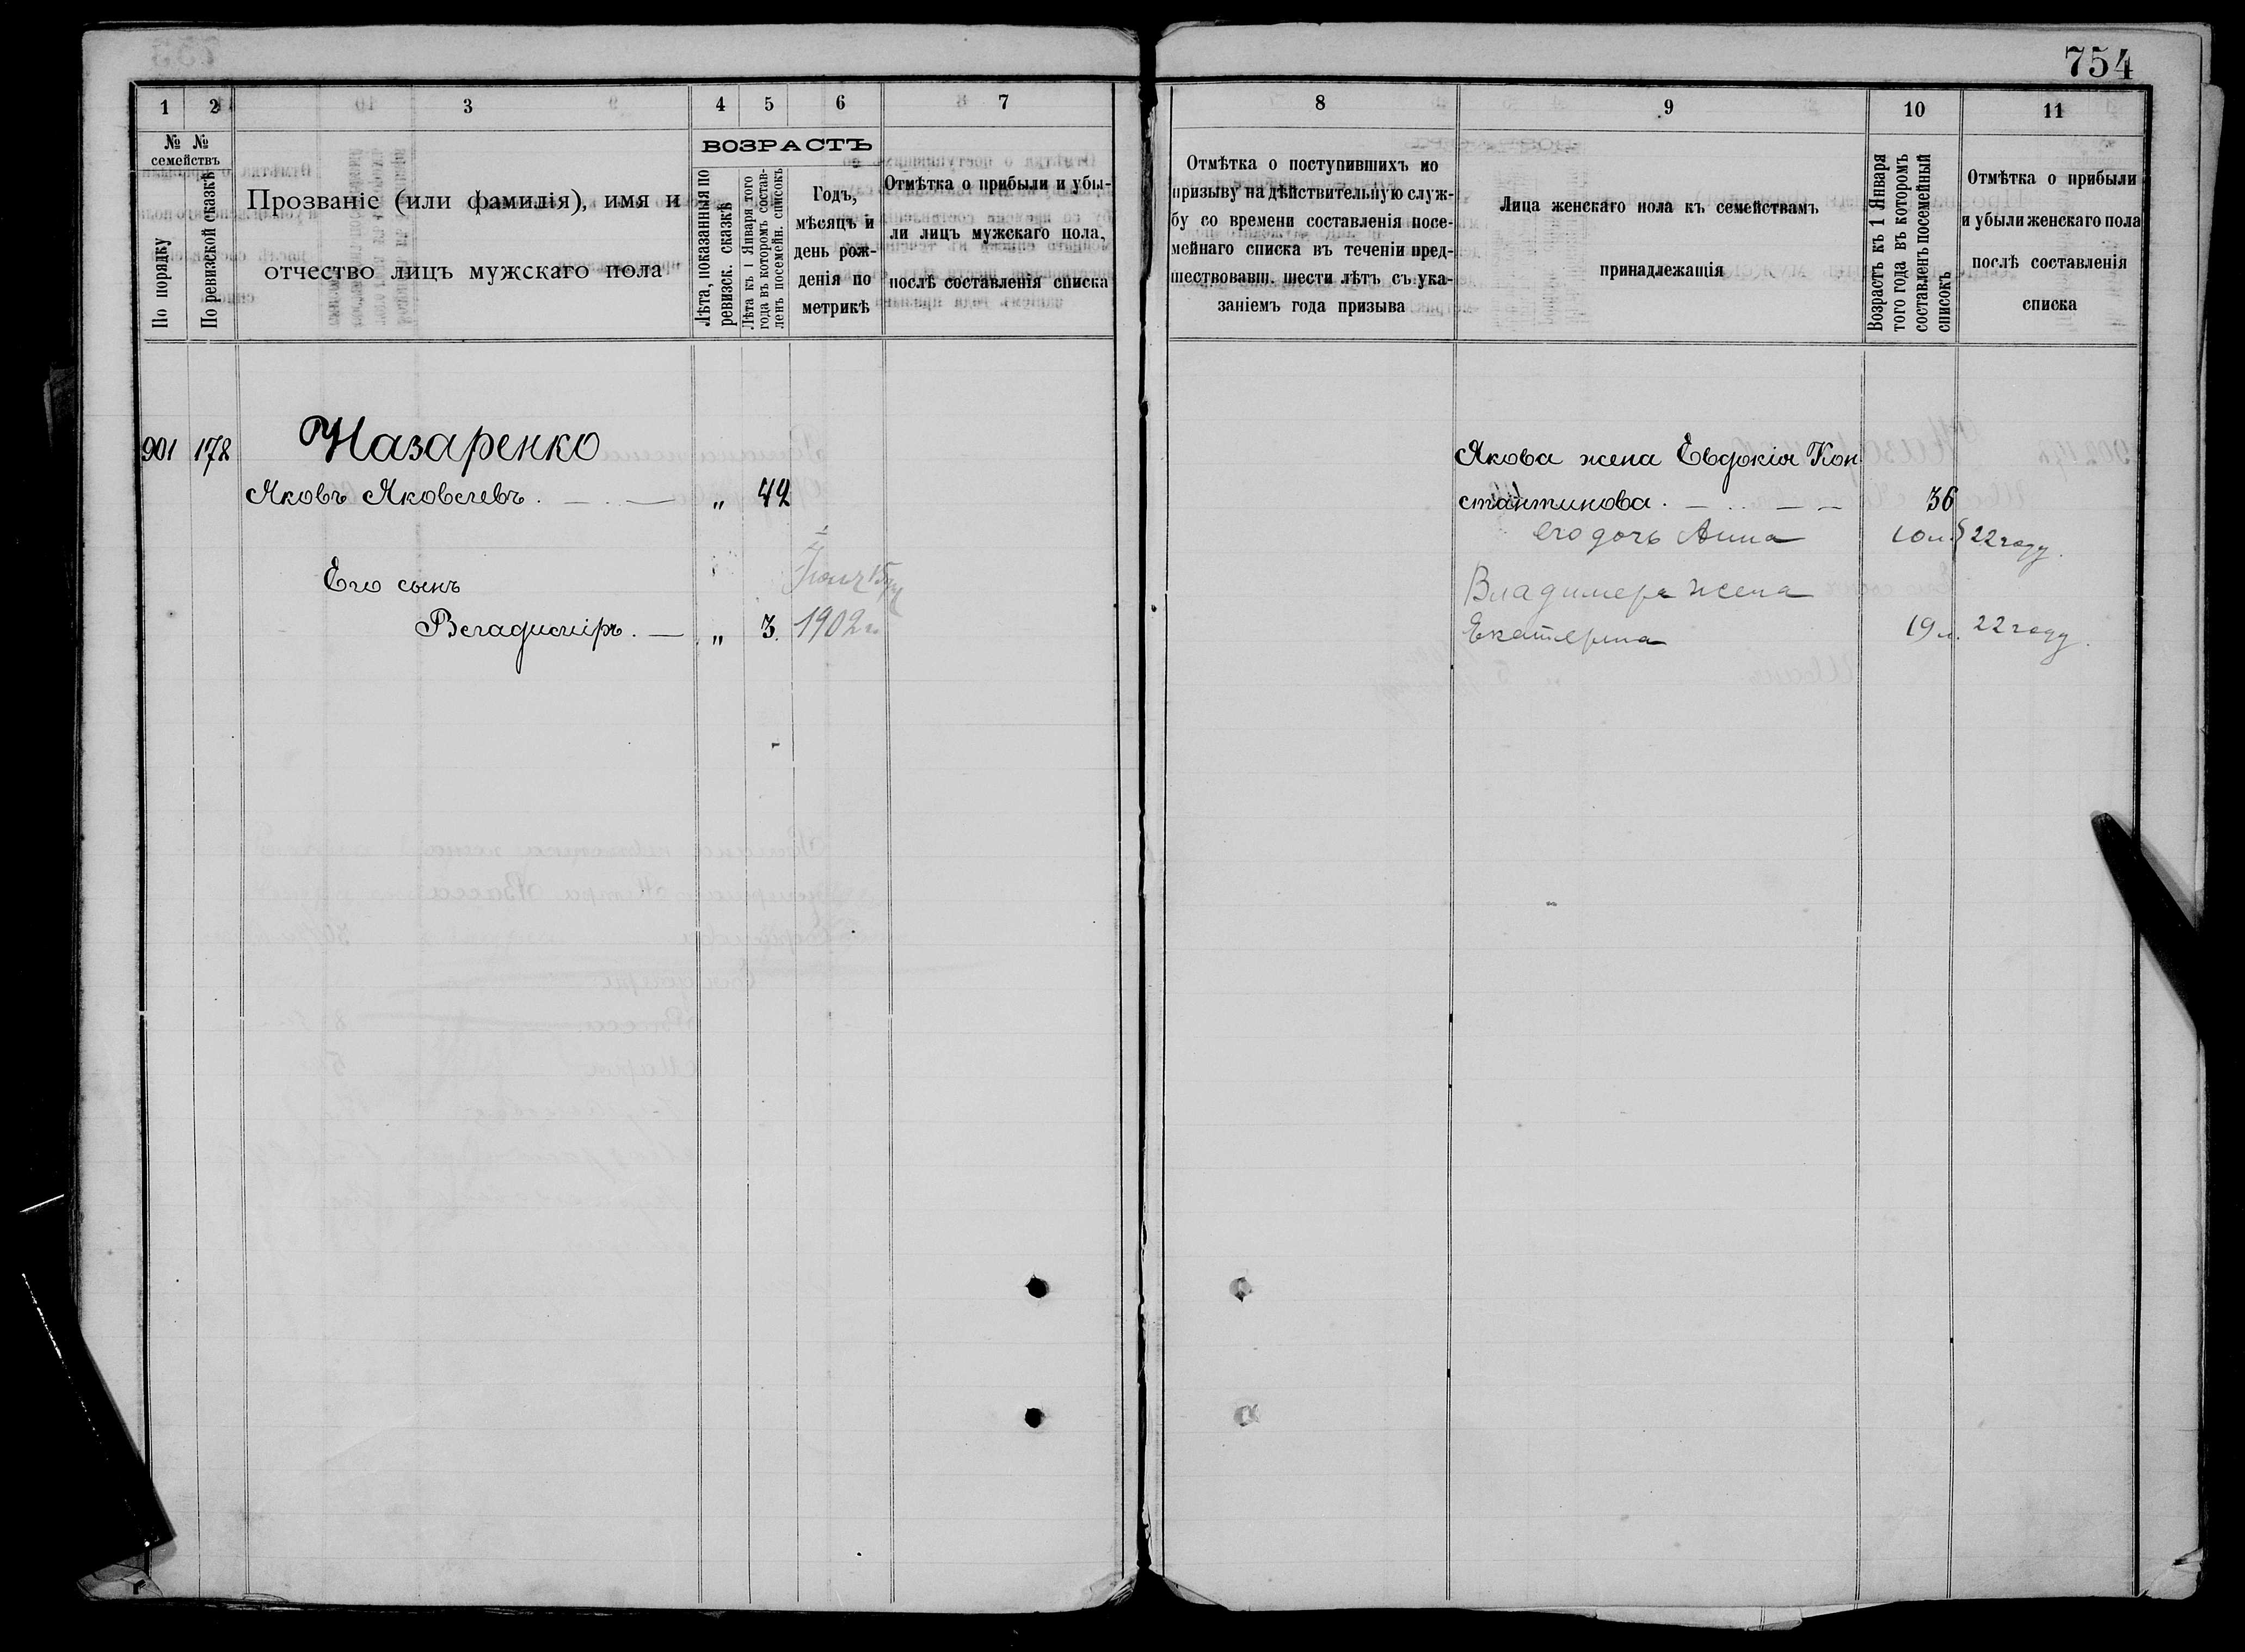 754
1 2 3 4 5 6 7
№ № семействъ
По порядку
По ревизской сказкѣ
Прозваніе (или фамилія), имя и
отчество лицъ мужскаго пола
ВОЗРАСТЪ
Лѣта, показанныя по
ревизск. сказкѣ
Лѣта къ 1 Января того
года въ которомъ состав-
ленъ посемейн. списокъ
Годъ,
мѣсяцъ и
день рож-
денія по
метрикѣ
Отмѣтка о прибыли и убы-
ли лицъ мужскаго пола,
послѣ составленія списка
901 178 Назаренко
Яковъ Яковлевъ. — . — „ 42
Его сынъ
15
Владиміръ. — „ 3. 1902 г.
8 9 10 11
Отмѣтка о поступившихъ по
призыву на дѣйствительную служ-
бу со времени составленія посе-
мейнаго списка въ теченіи пред-
шествовавш. шести лѣтъ съ ука-
заніемъ года призыва
Лица женскаго пола къ семействамъ
принадлежащія
Возрастъ къ 1 Января
того года въ которомъ
составленъ посемейный
списокъ
Отмѣтка о прибыли
и убыли женскаго пола
послѣ составленія
списка
Якова жена Евдокія Кон
стантинова. — . . — — 36
его дочь Анна 10 л. 22 году.
Владимера жена
Екатерина 19 л. 22 году.